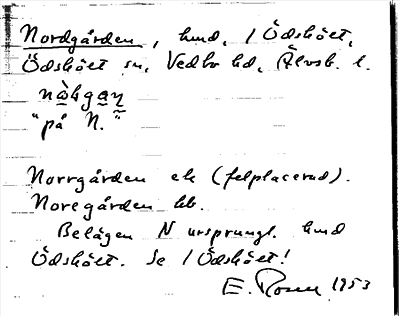 Nordgården, hmd, / Ödskölt,
Ödskölt sn, Vedbo hd, Älvsb. l.
nòḥgaṇ
"på N."
Norrgården ek (felplacerad).
Noregården bb.
Belägen N ursprungl. hmd
Ödskölt. Se / Ödskölt!
E. Rosén 1953